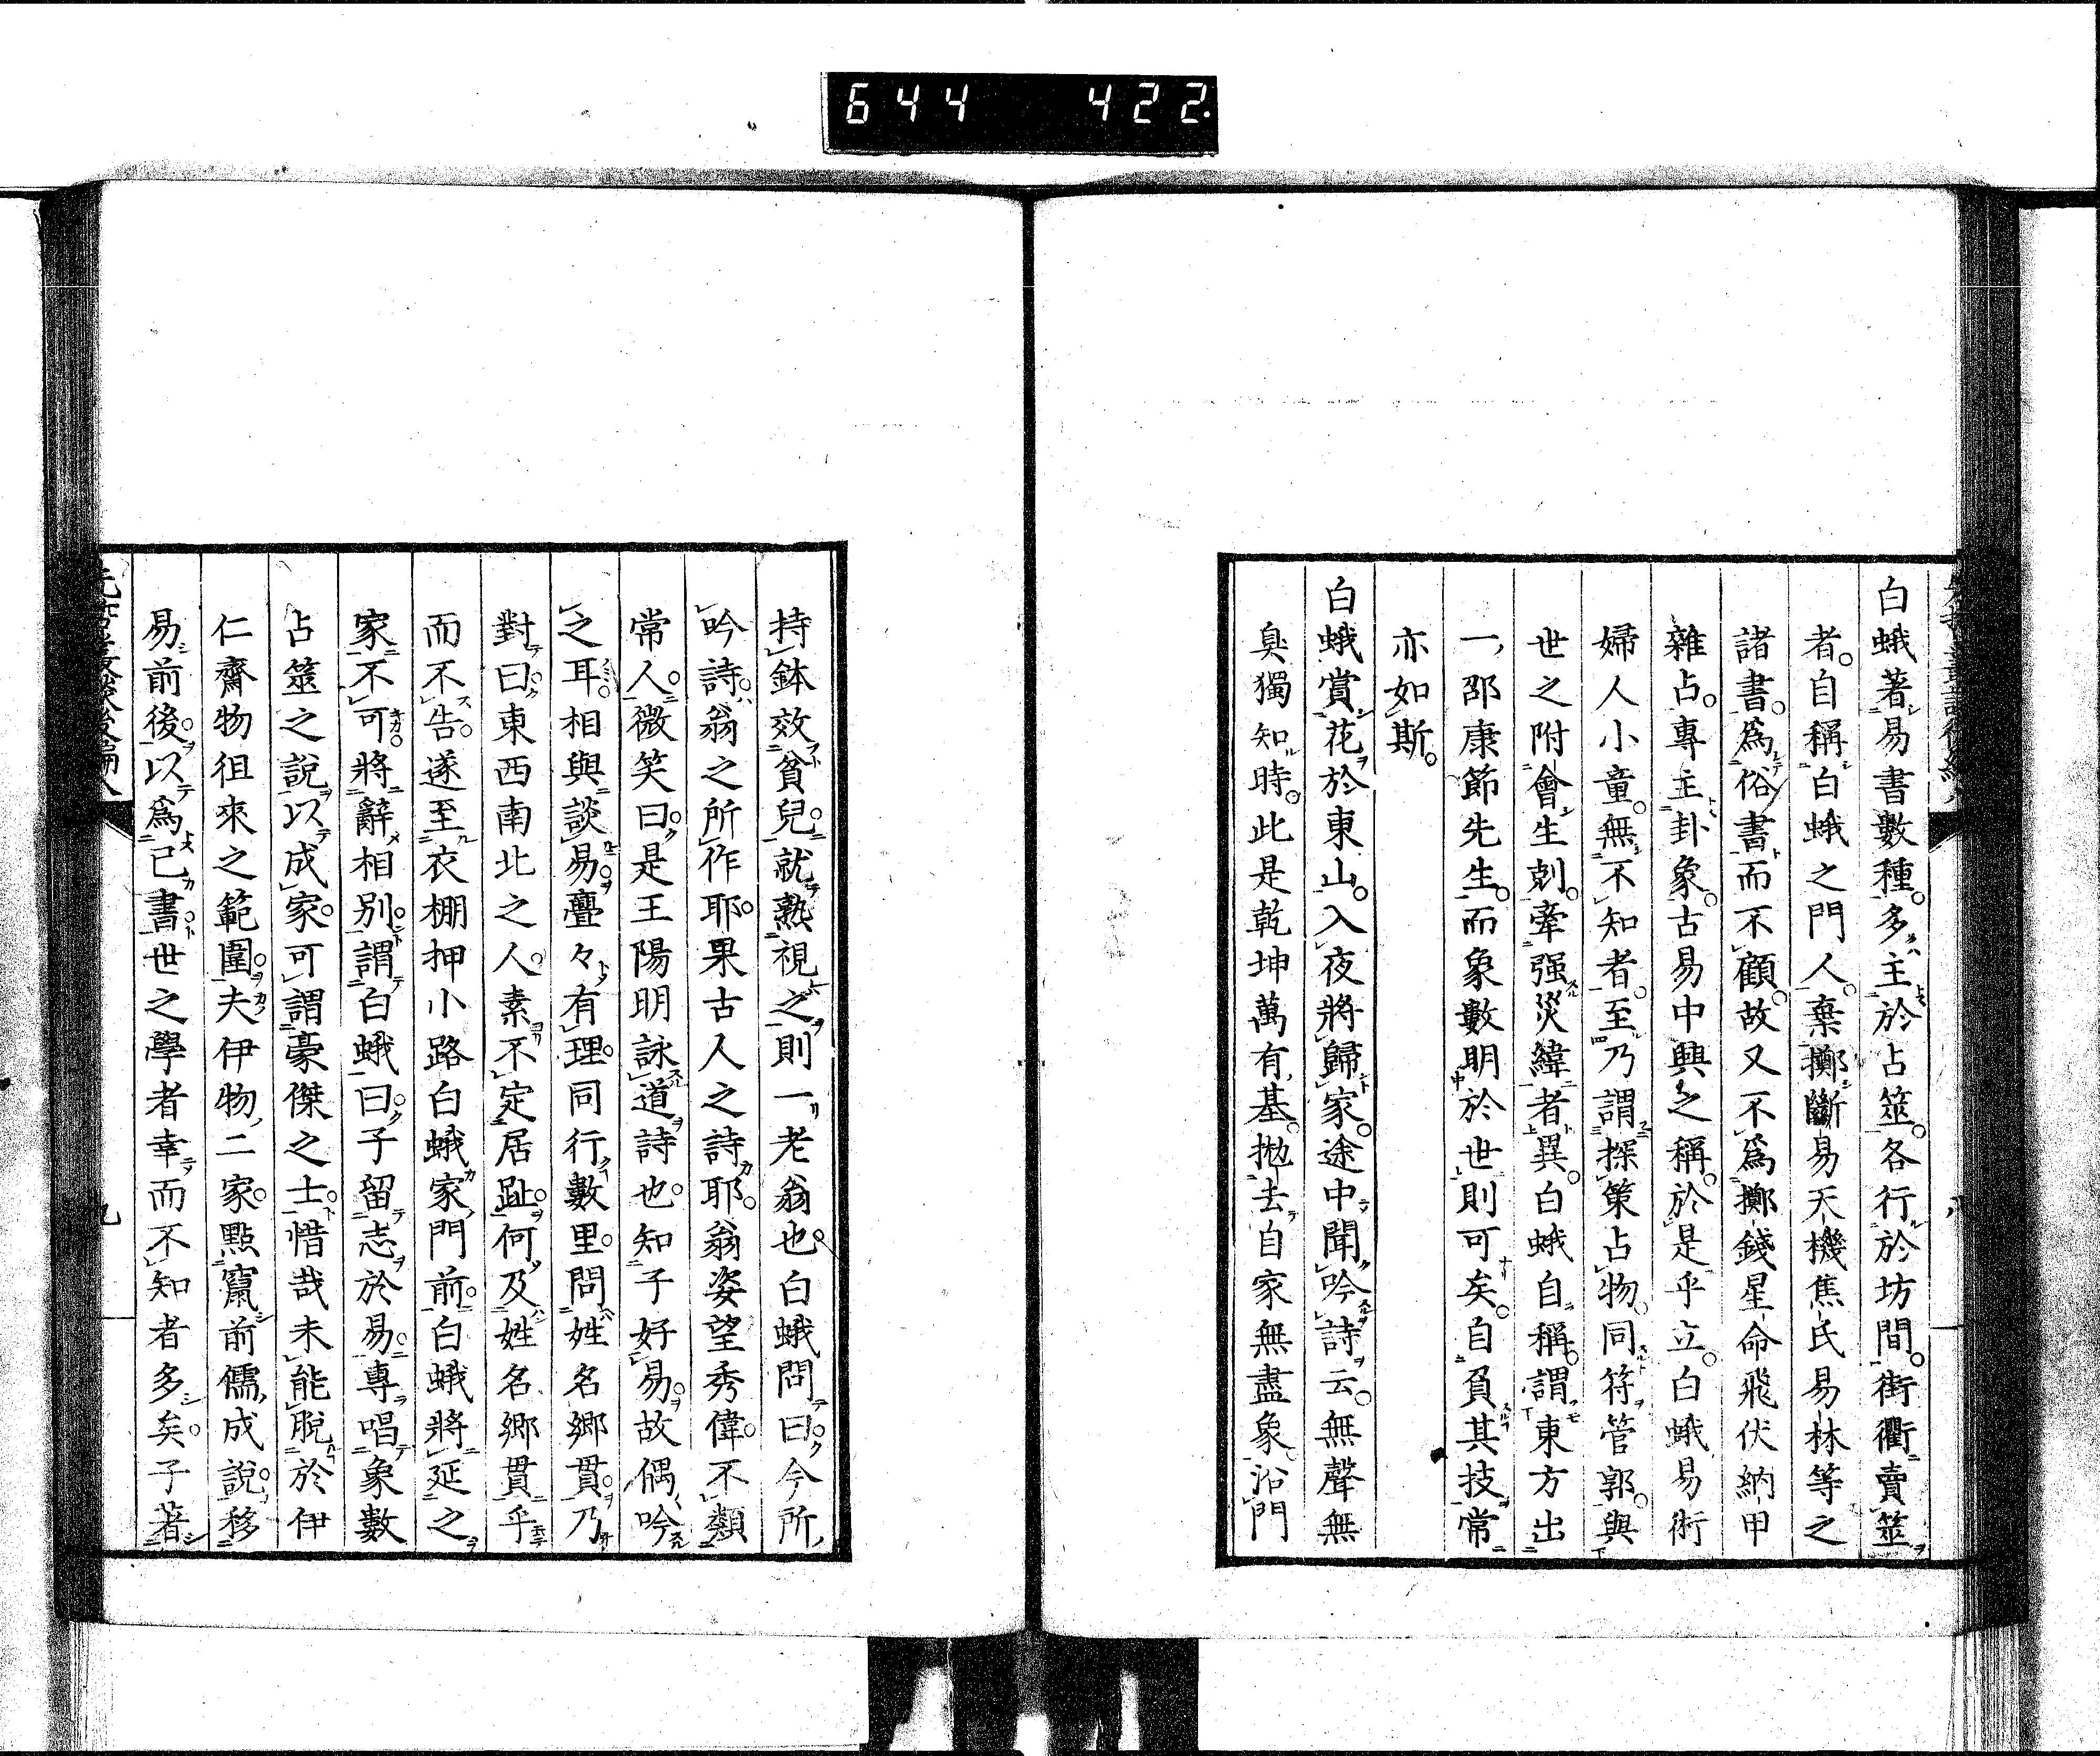 644 422.
白蛾著易書數種。多主於占筮。各行於坊間。街衢賣筮
者。自稱白蛾之門人。棄擲斷易天機焦氏易林等之
諸書。爲俗書而不顧。故又不爲擲錢星命飛伏納甲
雜占。專主卦象。古易中興之稱。於是乎立。白蛾易術
婦人小童。無不知者。至乃謂探策占物。同符管郭。與
世之附會生剋。牽强災緯者異。白蛾自稱。謂東方出
一邵康節先生。而象數明於世則可矣。自負其技常
亦如斯。
白蛾賞花於東山。入夜將歸家。途中聞吟詩云。無聲無
臭獨知時。此是乾坤萬有基。拋去自家無盡象。沿門
持鉢效貧兒。就熟視之則一老翁也。白蛾問曰。今所
吟詩。翁之所作耶。果古人之詩耶。翁姿望秀偉。不類
常人。微笑曰。是王陽明詠道詩也。知子好易。故偶吟
之耳。相與談易亹々有理。同行數里。問姓名鄉貫。乃
對曰。東西南北之人。素不定居趾。何及姓名鄉貫乎
而不告。遂至衣棚押小路白蛾家門前。白蛾將延之
家不可。將辭相別。謂白蛾曰。子留志於易。專唱象數
占筮之說。以成家。可謂豪傑之士。惜哉未能脫於伊
仁齋物徂來之範圍。夫伊物二家。點竄前儒。成說。移
易前後。以爲己書。世之學者幸而不知者多矣。子著
八
九